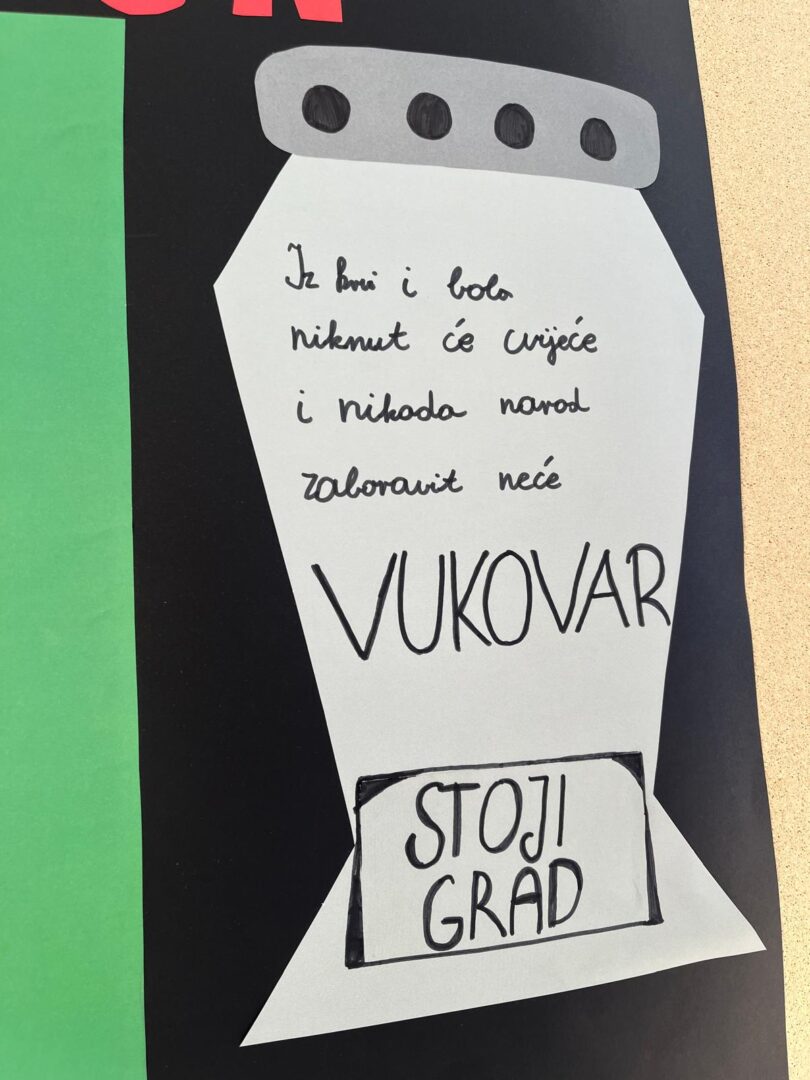 Iz krvi i bola
niknut će cvijeće
i nikada narod
zaboravit neće
VUKOVAR
STOJI
GRAD